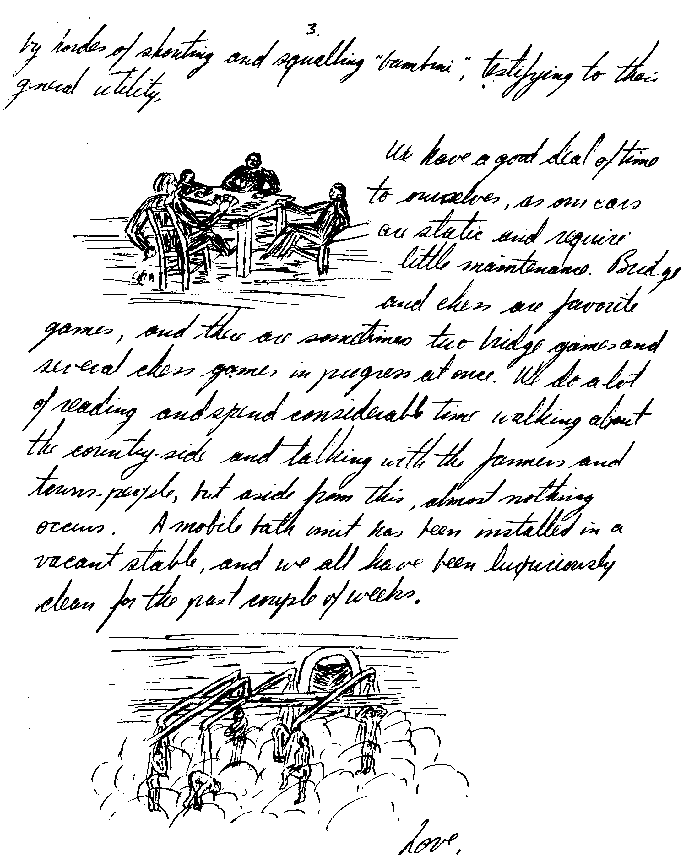 3.
by hordes of shouting and squalling "bambini", testifying to their
general utility.
We have a good deal of time
to ourselves, as our cars
are static and require
little maintenance. Bridge
and chess are favorite
games, and there are sometimes two bridge games and
several chess games in progress at once. We do a lot
of reading and spend considerable time walking about
the country-side and talking with the farmers and
towns-people, but aside from this, almost nothing
occurs. A mobile bath unit has been installed in a
vacant stable, and we all have been luxuriously
clean for the past couple of weeks.
Love,